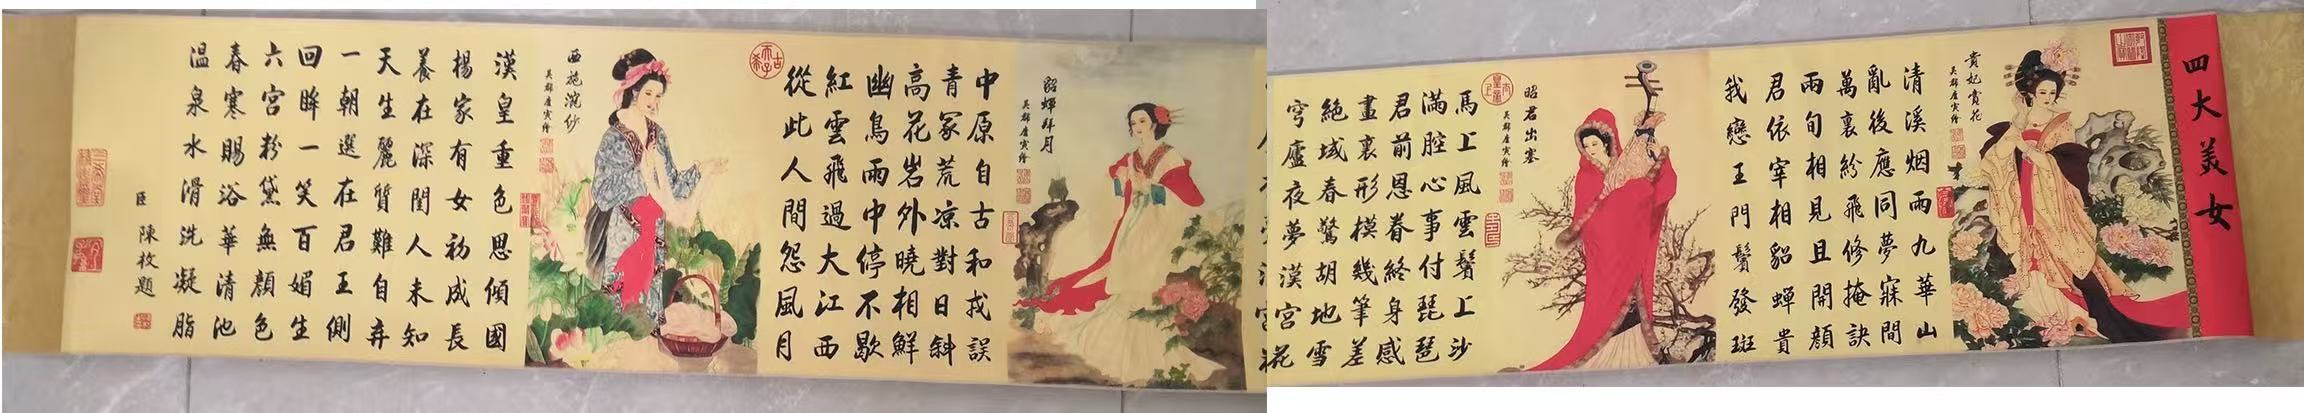 四大美女
貴妃賞花
清溪烟雨九華山
亂後應同夢寐間
萬裏紛飛修掩訣
雨旬相見且開顏
君依宰相貂蟬貴
我戀王門鬢發斑
昭君出塞
馬上風雲鬢上沙
滿腔心事付琵琶
君前恩眷終身感
畫裏形模幾筆差
絕域春驚胡地雪
穹廬夜夢漢宮花
貂蟬拜月
中原自古和戎誤
青冢荒凉對日斜
高花岩外曉相鮮
幽鳥雨中停不歇
紅雲飛過大江西
從此人間怨風月
西施浣紗
漢皇重色思傾國
楊家有女初成長
養在深閨人未知
天生麗質難自弃
一朝選在君王側
回眸一笑百媚生
六宮粉黛無顏色
春寒賜浴華清池
溫泉水滑洗凝脂
臣 陳枚題